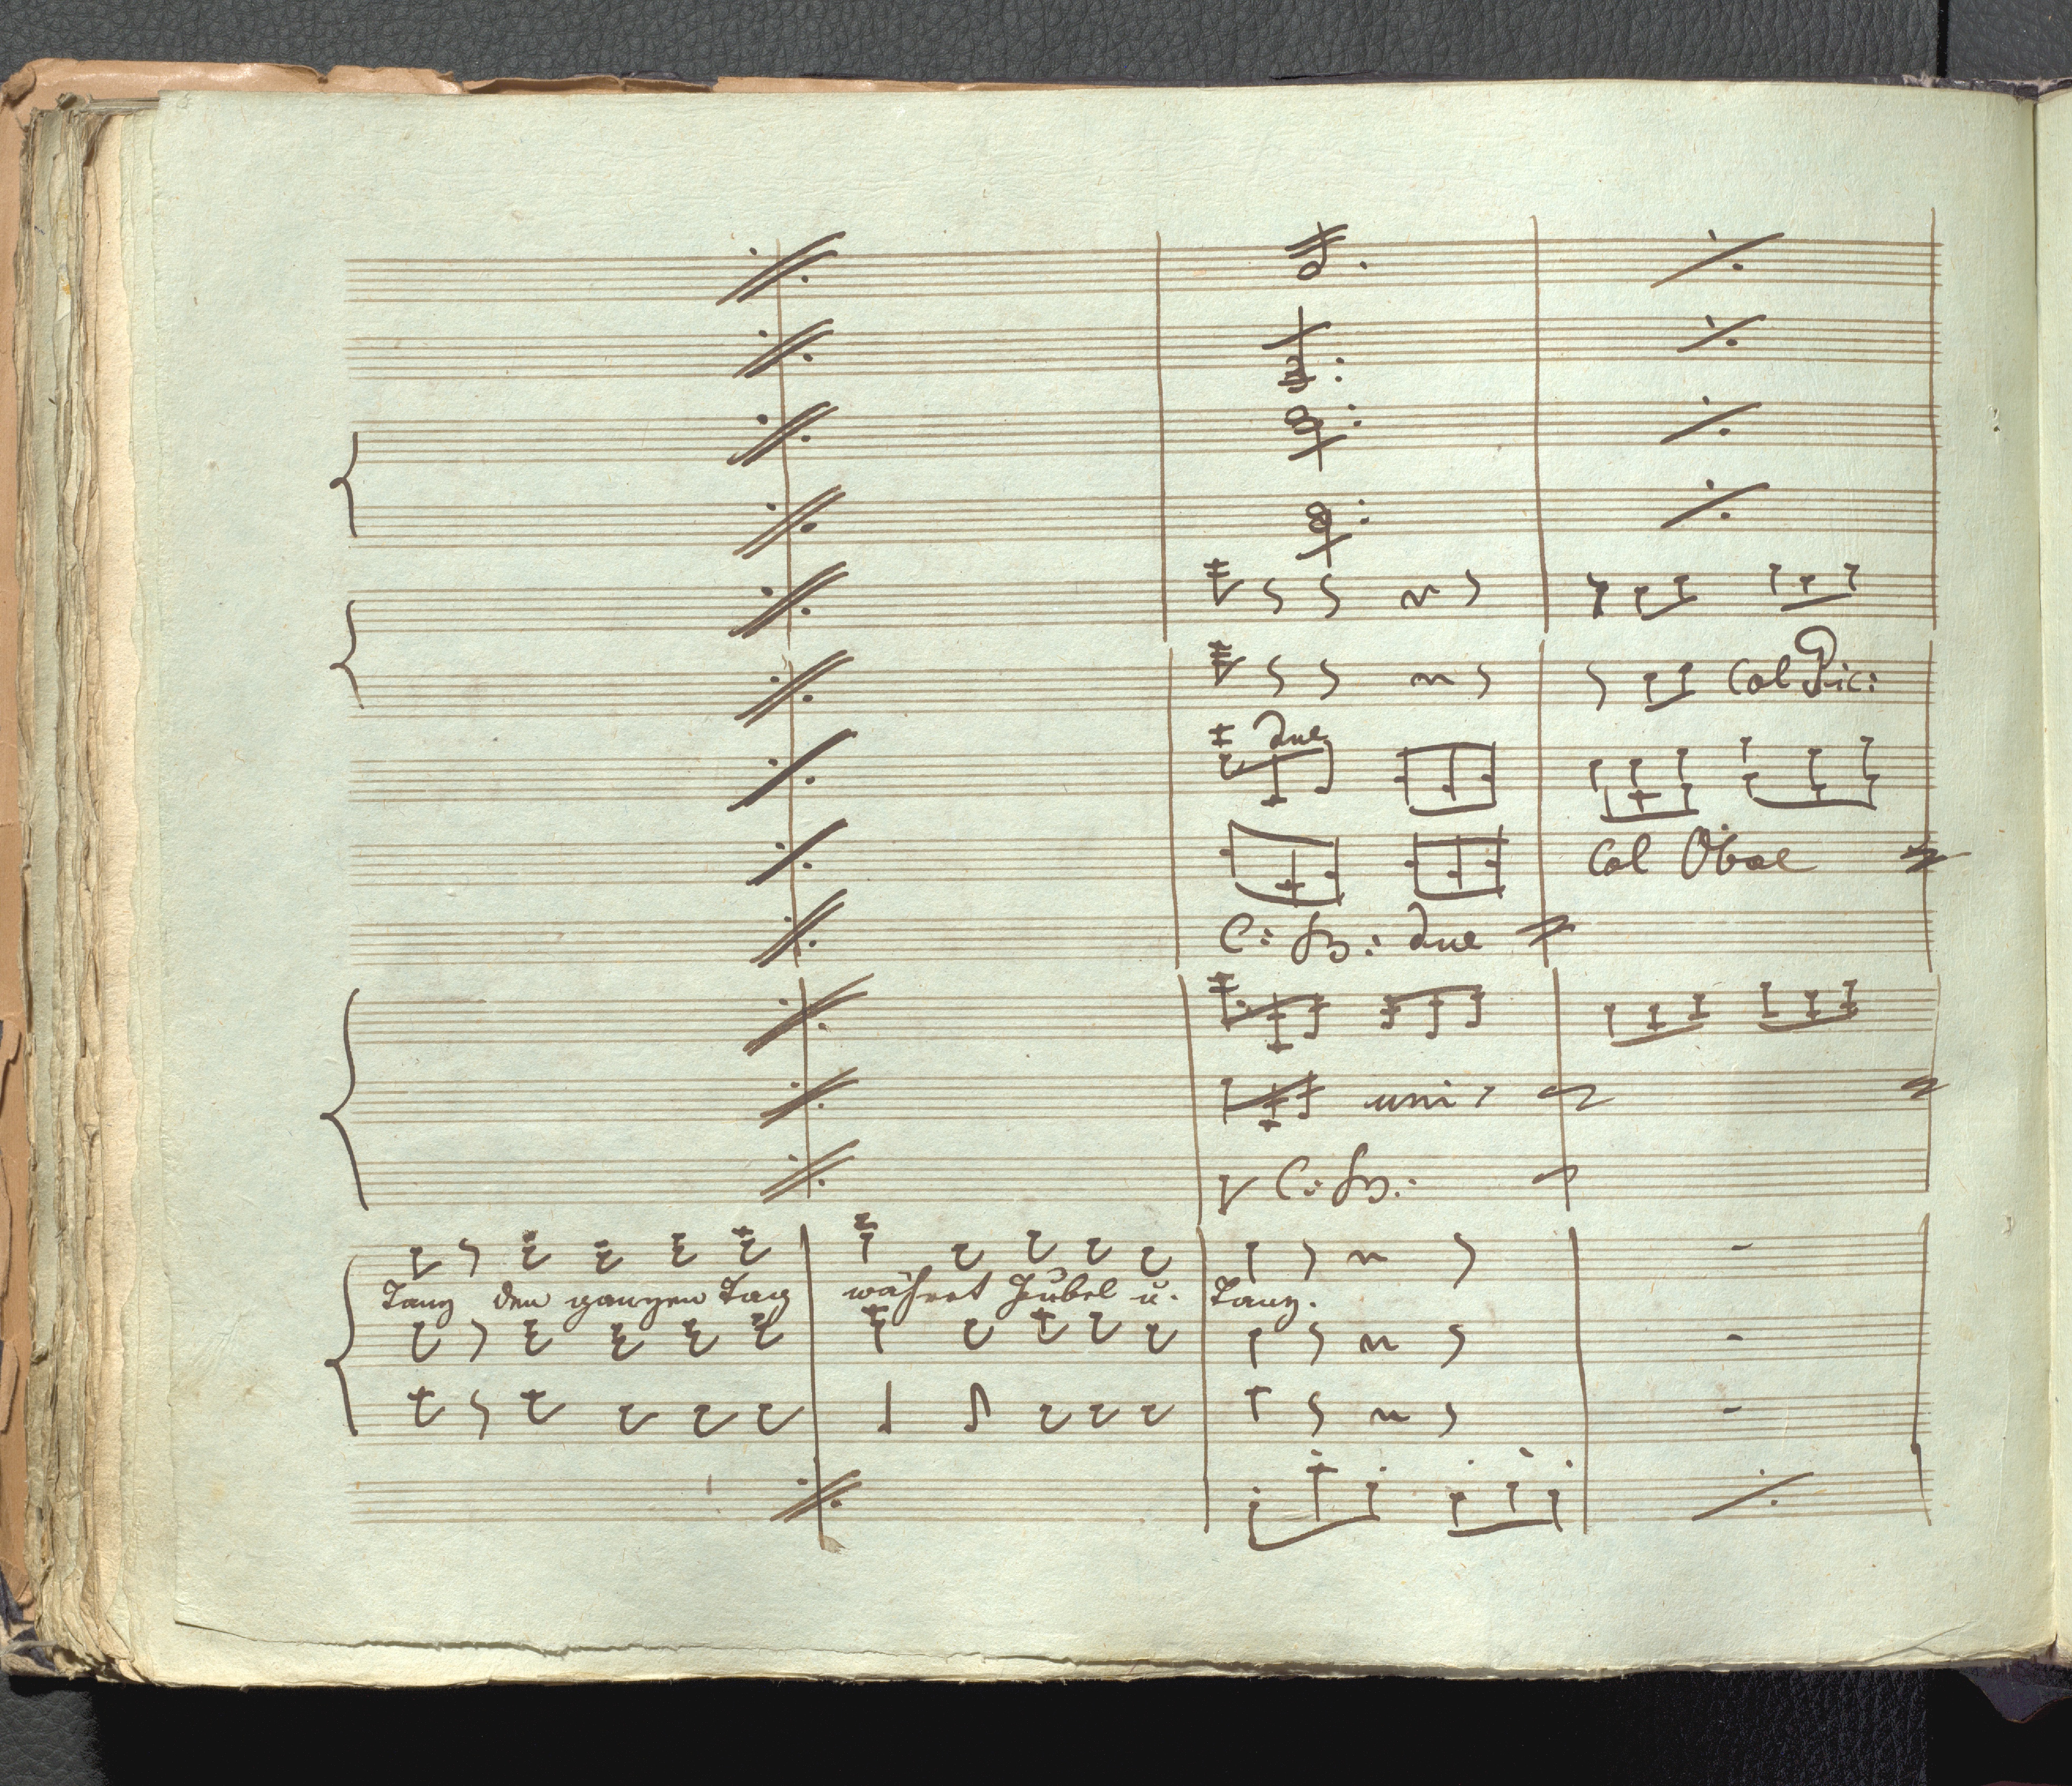 Col Pic:
due
Col Oboe
C: B: due
uni
C: B:
Tanz den ganzen Tag währet Jubel u. Tanz.